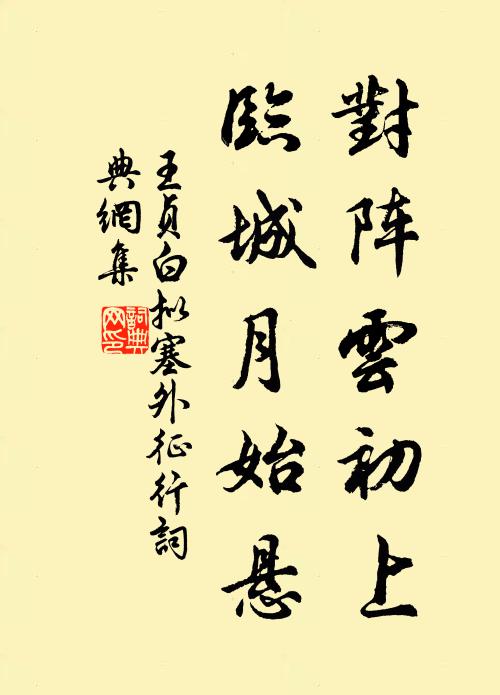 對阵雲初上
臨城月始悬
王貞白拟塞外征行詞
典網集
詞典网印